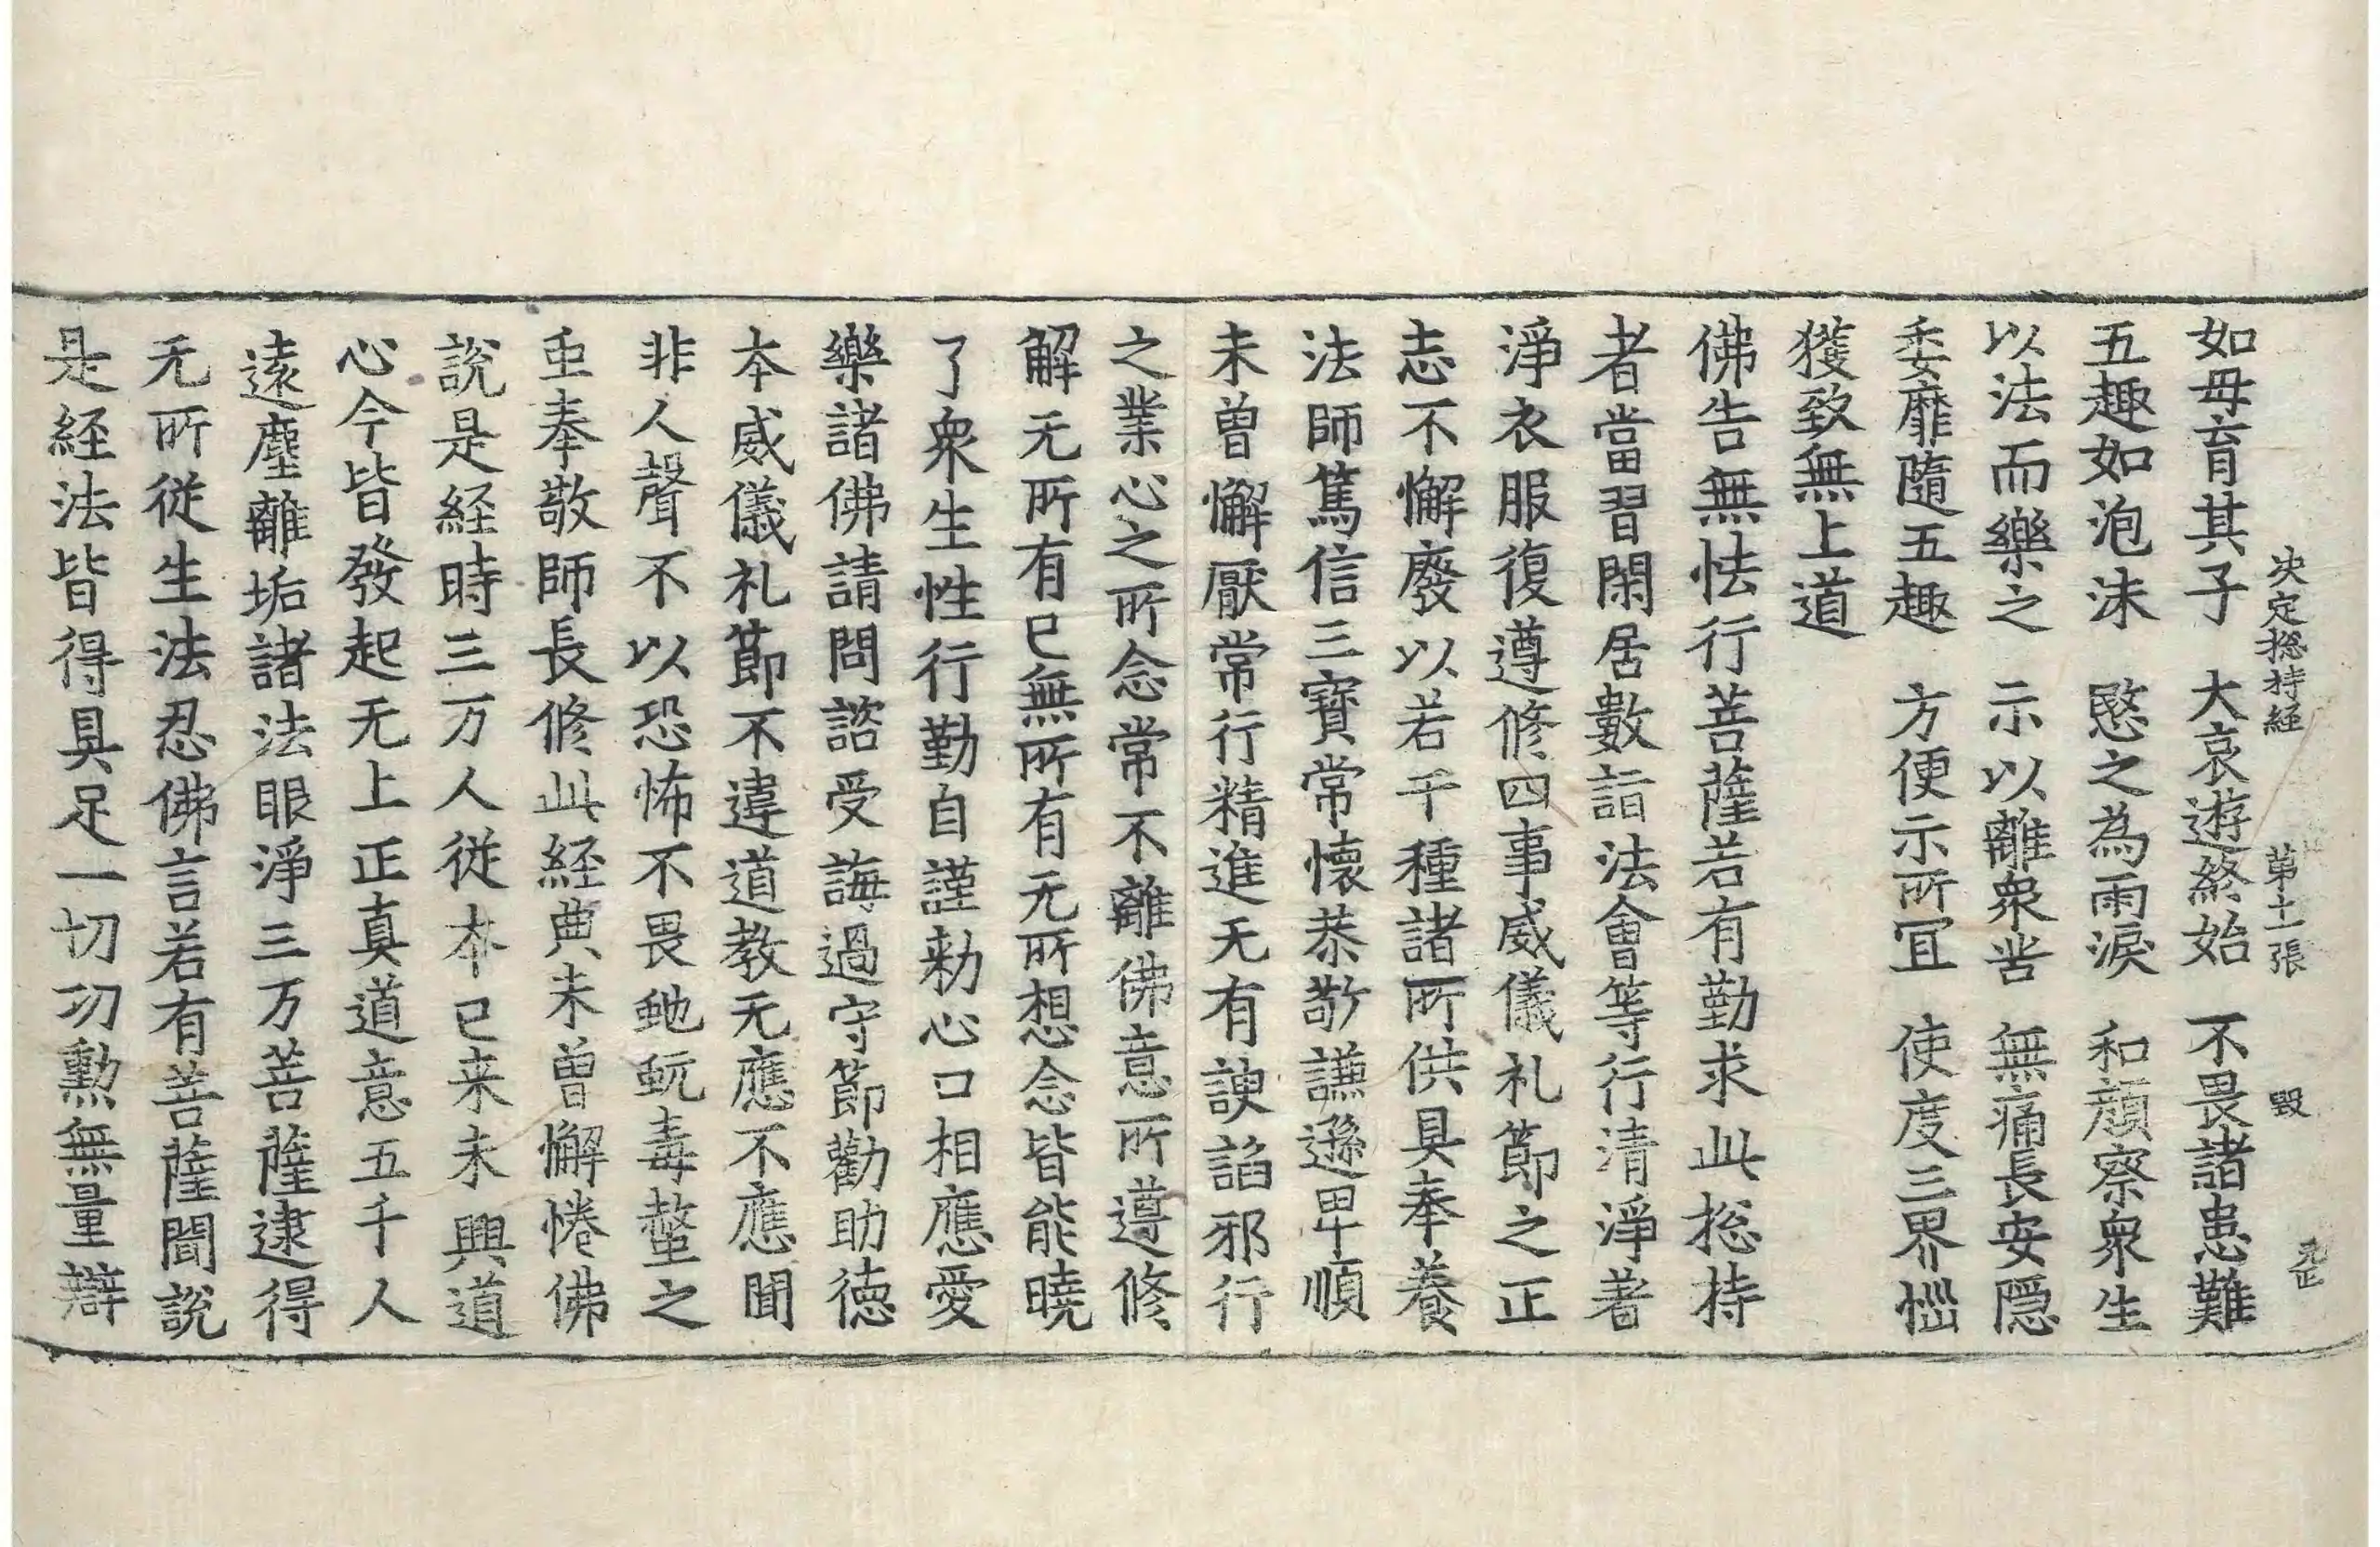 决定捴持経 第十一張 毀
如母育其子 大哀遊終始 不畏諸患難
五趣如泡沫 愍之為雨淚 和顔察衆生
以法而樂之 示以離衆苦 無痛長安隱
委靡隨五趣 方便示所冝 使度三界惱
獲致無上道
佛告無怯行菩薩若有勤求此捴持
者當習閑居數詣法會等行清淨著
淨衣服復遵修四事威儀礼節之正
志不懈廢以若干種諸所供具奉養
法師篤信三寶常懷恭敬謙遜卑順
未曽懈厭常行精進无有諛諂邪行
之業心之所念常不離佛意所遵修
解无所有已無所有无所想念皆能曉
了衆生性行勤自謹勑心口相應愛
樂諸佛請問諮受誨過守節勸助徳
本威儀礼節不違道教无應不應聞
非人聲不以恐怖不畏虵蚖毒螫之
重奉敬師長修此経典未曽懈惓佛
説是経時三万人従本已来未興道
心今皆發起无上正真道意五千人
遠塵離垢諸法眼淨三万菩薩逮得
无所従生法忍佛言若有菩薩聞説
是経法皆得具足一切功勲無量辯